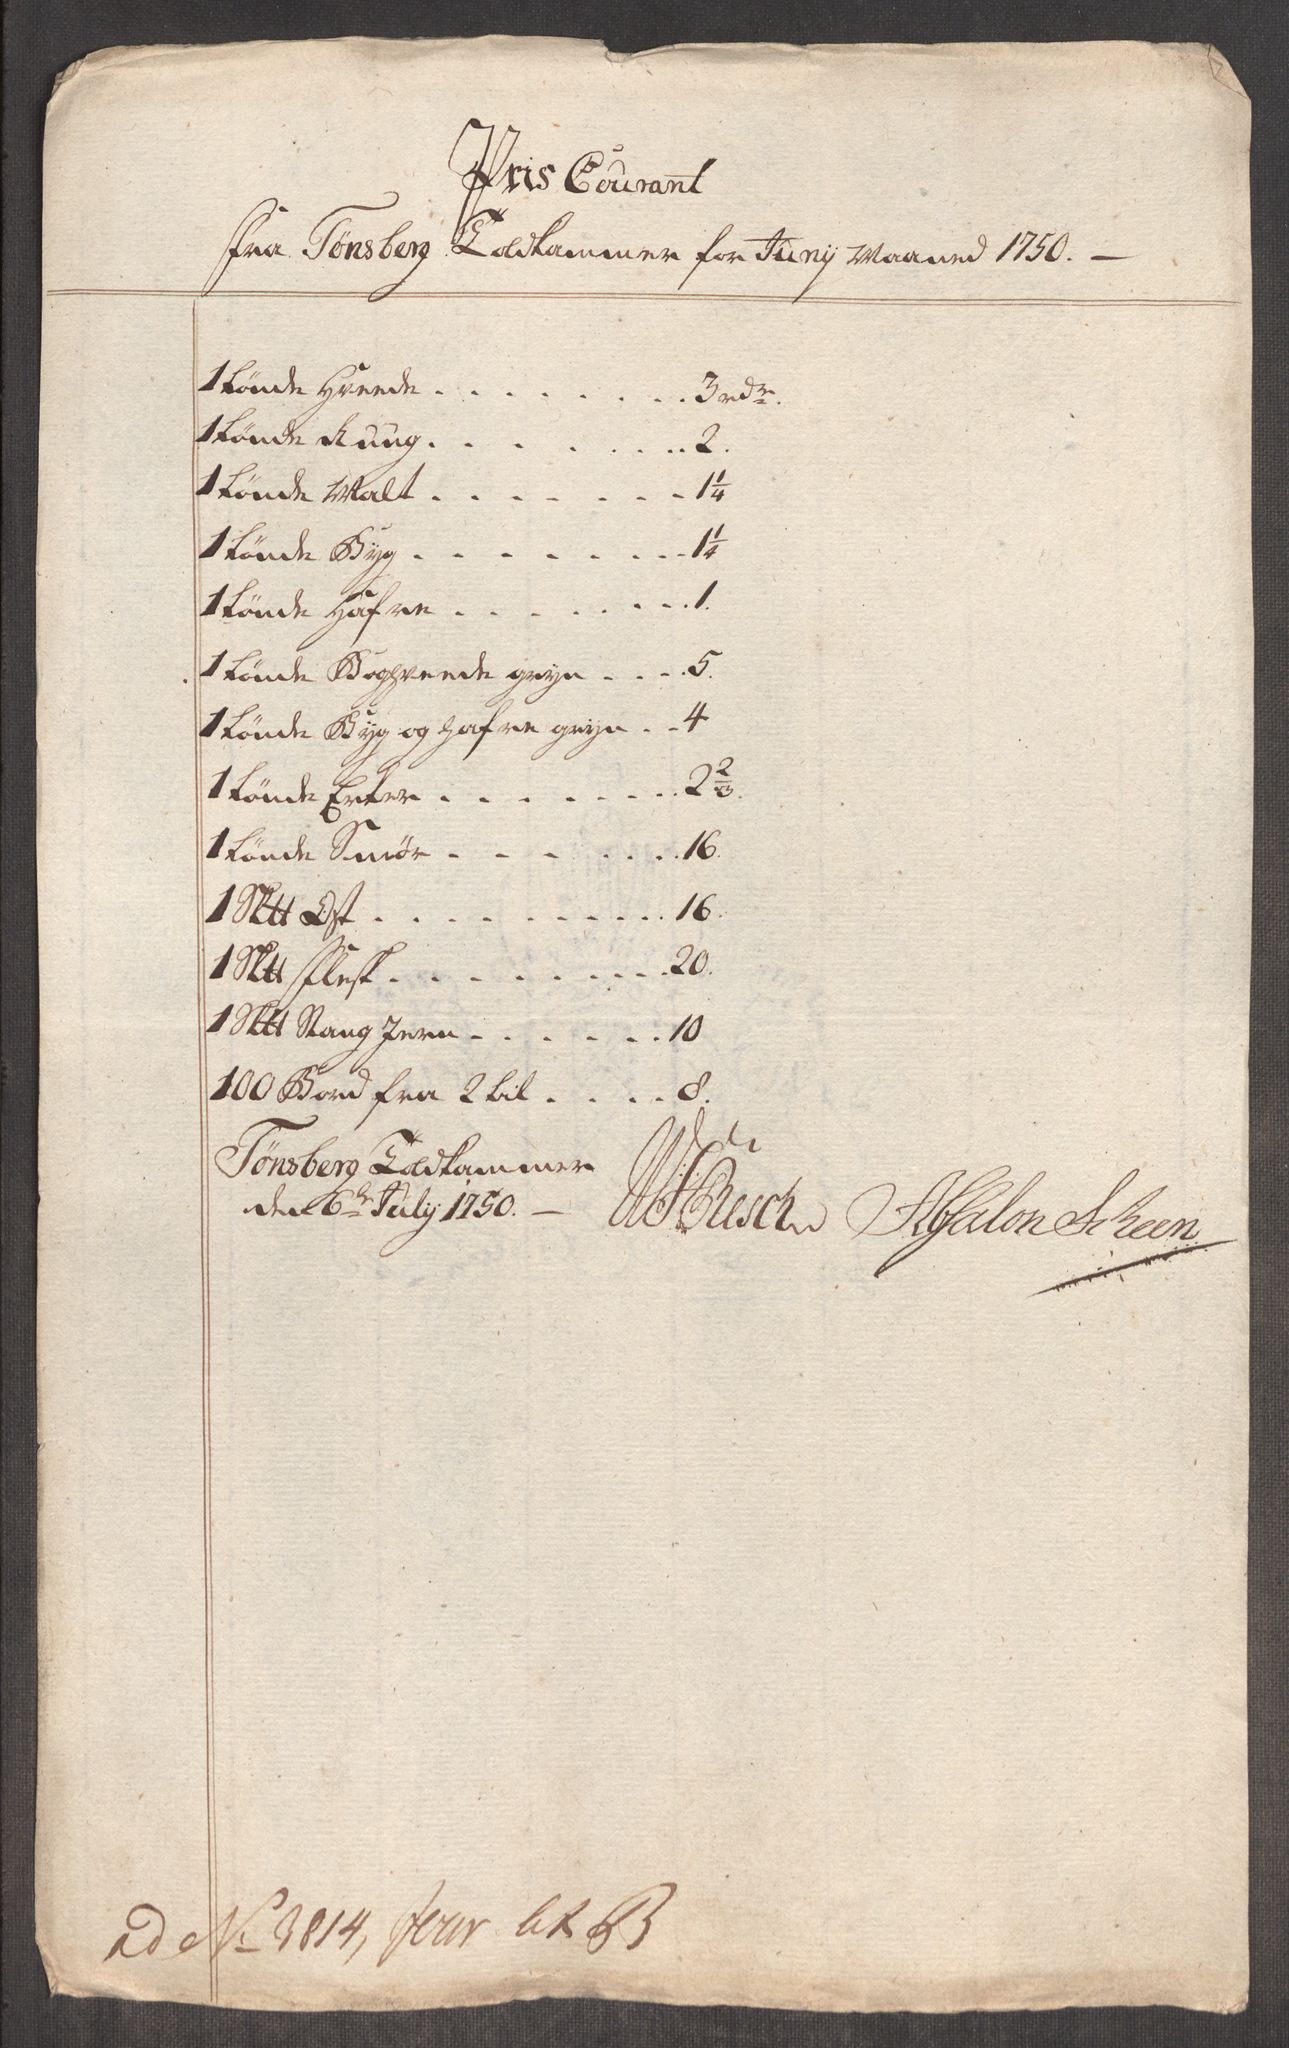 Pris Courant
fra Tønsberg Toldkammer for Junij Maaned 1750. —
1 tønde Hveede . . . . . . . . 3 rdr.
1 tønde Ruug . . . . . . . . 2.
1 tønde Malt . . . . . . . 1 1/4
1 tønde Byg . . . . . . . . 1 1/4
1 tønde Hafre . . . . . . . . 1.
1 tønde Boghveede gryn . . . . 5.
1 tønde Byg og Hafre gryn . . 4
1 tønde Erter . . . . . . . . 2 2/3.
1 tønde Smør . . . . . . . . 16.
1 Sk℔ Ost . . . . . . . . . . 16.
1 Sk℔ Flesk . . . . . . . . . 20.
1 Sk℔ Stang Jern . . . . . . . 10
100 Bord fra 2 til . . . . 8.
Tønsberg Toldkammer
den 6te July 1750. —
Resch Absalon Scheen
ad No 3814, lit B